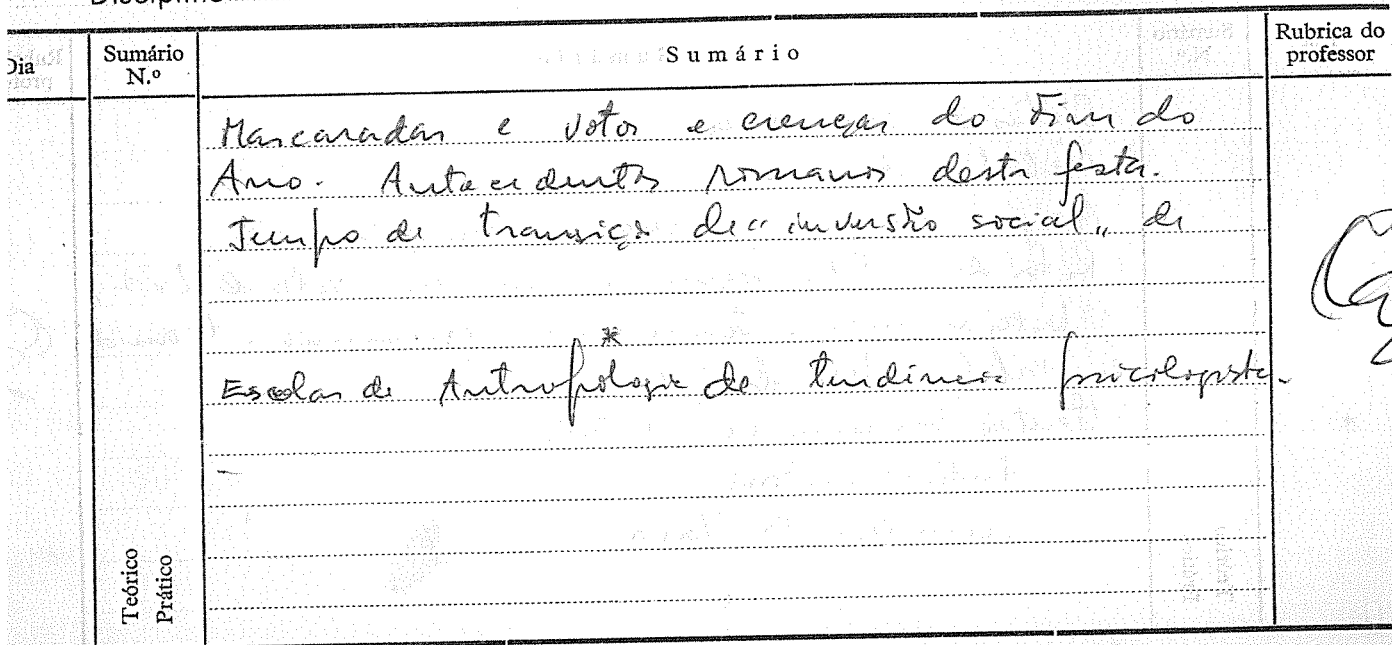 Dia
Sumário N.º
Sumário
Rubrica do professor
Mascaradas e votos e crenças do Fim do
Ano. Antecedentes romanos desta festa.
Tempo de transição de "inversão social„ de
*
Escolas de Antropologia de tendência psicologista.
Teórico
Prático